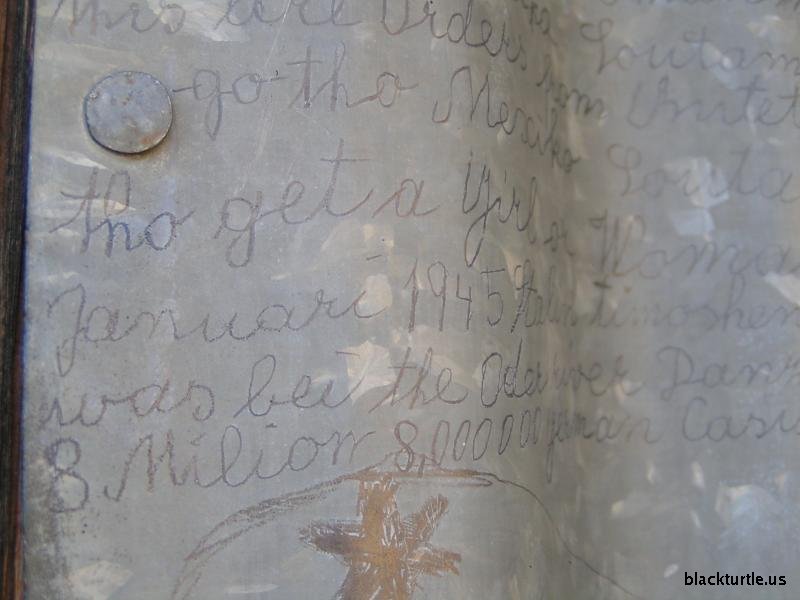 this are Orders Soutam
go tho Mexiko from Unitet
tho get a Girl or Woman
Januari 1945 Stalin timoshen
was bei the Oder wer Danz
8 Milion 8,000 000 german Casu
blackturtle.us